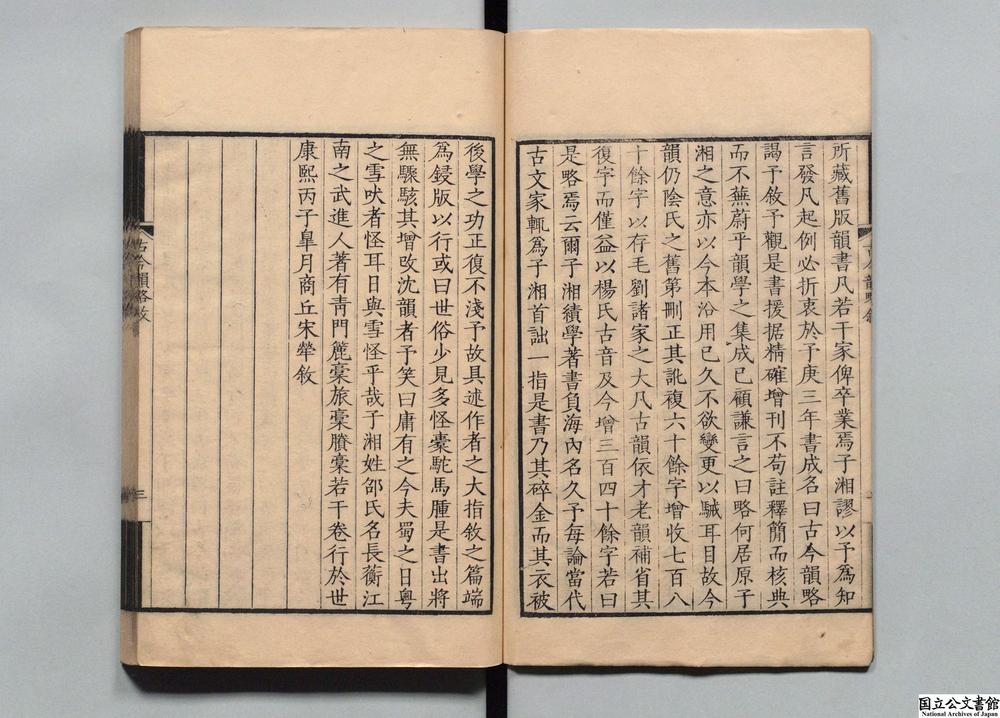 所藏舊版韻書凡若干家俾卒業焉子湘謬以予為知
言發凡起例必折衷於予庚三年書成名曰古今韻略
謁予敘予觀是書援据精確增刊不苟註釋簡而核典
而不蕪蔚乎韻學之集成已顧謙言之曰略何居原子
湘之意亦以今本沿用已久不欲變更以駴耳目故今
韻仍陰氏之舊第刪正其訛複六十餘字增收七百八
十餘字以存毛劉諸家之大凡古韻依才老韻補省其
復字而僅益以楊氏古音及今增三百四十餘字若曰
是略焉云爾子湘績學著書負海內名久予每論當代
古文家輒為子湘首詘一指是書乃其碎金而其衣被
後學之功正復不淺予故具述作者之大指敘之篇端
為鋟版以行或曰世俗少見多怪橐駝馬腫是書出將
無驟駭其增改沈韻者予笑曰庸有之今夫蜀之日粵
之雪吠者怪耳日與雪怪乎哉子湘姓邵氏名長蘅江
南之武進人著有青門簏稾旅稾賸稾若干卷行於世
康熙丙子皐月商丘宋犖敘
古今韻略敘
三
国立公文書館
National Archives of Japan